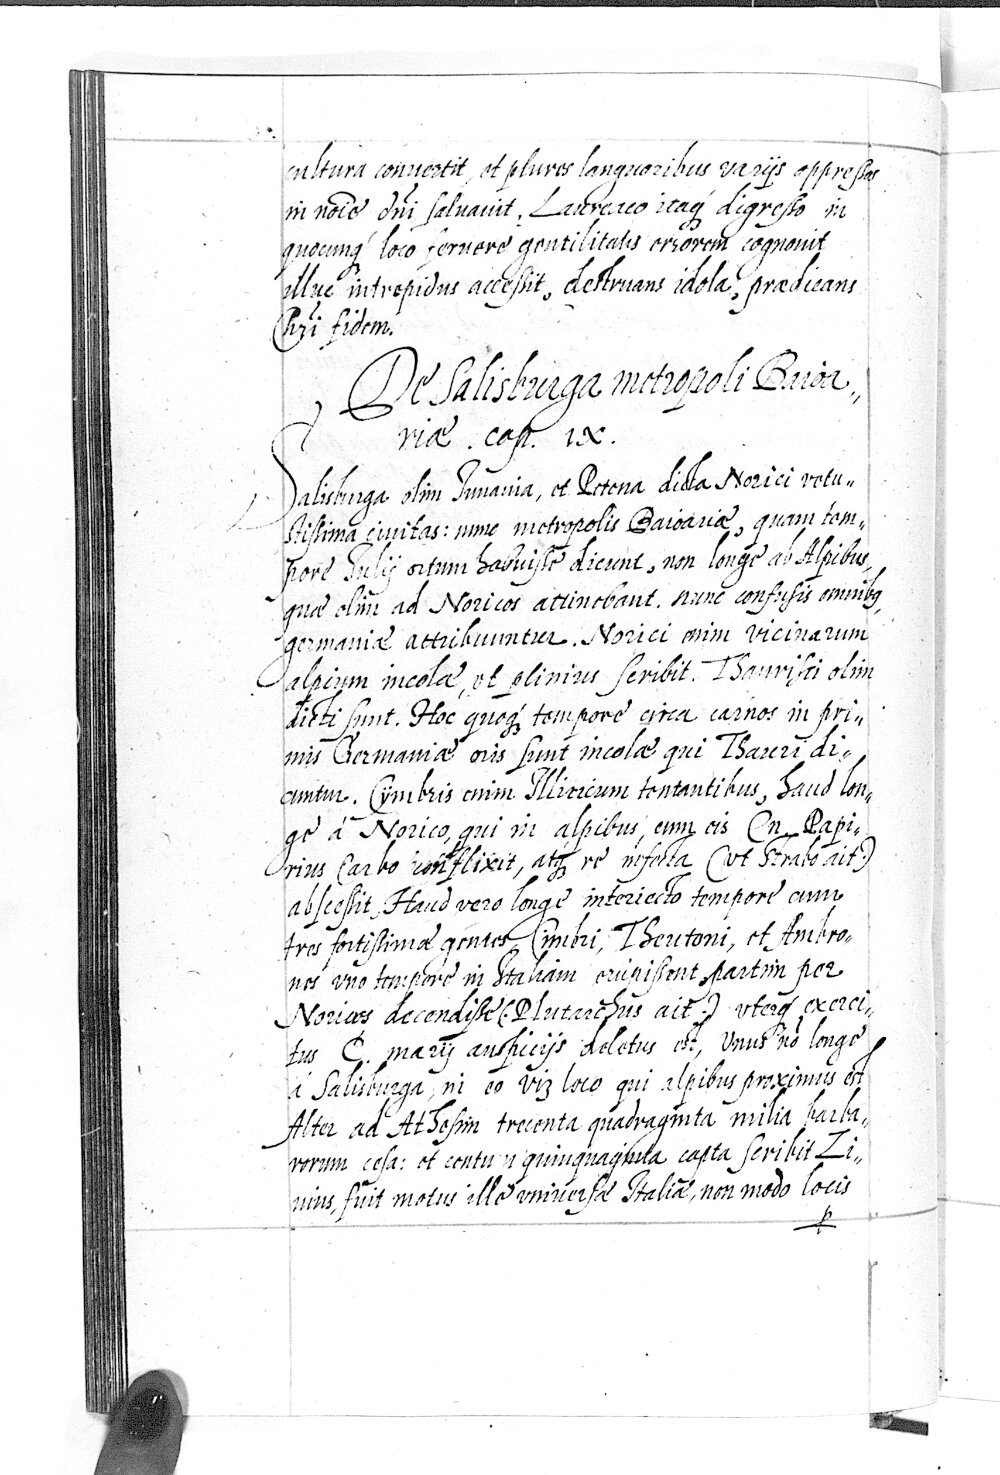 cultura conuertit, et plures languoribus varijs oppressos
in nōie dni saluauit. Laureaco itaq́ digresso in
quocunq́ loco feruere gentilitatis errorem cognouit
illuc intrepidus accessit, destruans idola, prædicans
Chri fidem.
De Salisburga metropoli Baioa„
riæ . cap. IX.
Salisburga olim Iuuauia, et Petena dicta Norici vetu„
stissima ciuitas: nunc metropolis Baioariæ, quam tem„
pore Iulij ortum habuisse dicunt, non longe ab Alpibus,
quæ olim ad Noricos attinebant. nunc confusis omnibq,
germaniæ attribuuntur. Norici enim vicinarum
alpium incolæ, ut plinius scribit. Thauristi olim
dicti sunt. Hoc quoq́ tempore circa carnos in pri„
mis Germaniæ oris sunt incolæ qui Thauri di„
cuntur. Cymbris enim Illiricum tentantibus, haud lon„
ge á Norico, qui in alpibus, cum eis Cn. Papi„
rius Carbo conflixit, atq́ re infecta (vt Strabo ait:)
abscessit. Haud vero longe interiecto tempore cum
tres fortissimæ gentes, Cimbri, Theutoni, et Ambro„
nes vno tempore in Italiam erupissent, partim per
Noricos decendisse (: Plutarchus ait :) uterq́ exerci„
tus C. marij auspicijs deletus est, Vnus nō longe
á Salisburga, in eo viz loco qui alpibus proximus est
Alter ad Athesim trecenta quadraginta milia barba„
rorum cesa: et centu quinquaginta capta scribit Li„
uius, fuit motus ille vniuersæ Italiæ, non modo locis
p